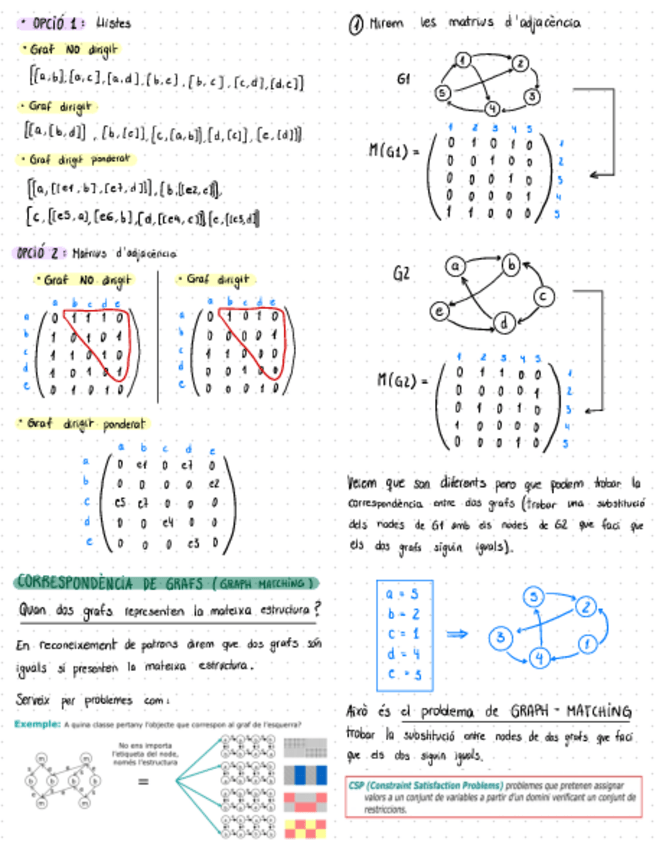 • OPCIÓ 1: Llistes
• Graf NO dirigit
[[a,b],[a,c],[a,d],[b,e],[b,c],[c,d],[d,e]]
• Graf dirigit
[[a,[b,d]] , [b,[e]],[c,[a,b]],[d,[c]],[e,[d]]]
• Graf dirigit ponderat
[[a,[[e1,b],[e7,d]]],[b,[[e2,e]]],
[c,[[e5,a],[e6,b]],[d,[[e4,c]]],[e,[[e3,d]]]
OPCIÓ 2: Matrius d'adjacència
• Graf NO dirigit
• Graf dirigit
a b c d e
a 0 1 1 1 0
b 1 0 1 0 1
c 1 1 0 1 0
d 1 0 1 0 1
e 0 1 0 1 0
a b c d e
a 0 1 0 1 0
b 0 0 0 0 1
c 1 1 0 0 0
d 0 0 1 0 0
e 0 0 0 1 0
• Graf dirigit ponderat
a b c d e
a 0 e1 0 e7 0
b 0 0 0 0 e2
c e5 e7 0 0 0
d 0 0 e4 0 0
e 0 0 0 e3 0
CORRESPONDÈNCIA DE GRAFS (GRAPH MATCHING)
Quan dos grafs representen la mateixa estructura?
En reconeixement de patrons direm que dos grafs són
iguals si presenten la mateixa estructura.
Serveix per problemes com:
Exemple: A quina classe pertany l'objecte que correspon al graf de l'esquerra?
No ens importa
l'etiqueta del node,
només l'estructura
=
① Mirem les matrius d'adjacència
G1
1 2 3 4 5
M(G1) =
0 1 0 1 0 1
0 0 1 0 0 2
0 0 0 1 0
0 0 0 0 1
1 1 0 0 0 5
G2
a b c d e
M(G2) =
1 2 3 4 5
0 1 1 0 0 1
0 0 0 0 1 2
0 1 0 1 0 3
1 0 0 0 0 4
0 0 0 1 0 5
Veiem que son diferents pero que podem trobar la
correspondència entre dos grafs (trobar una substitució
dels nodes de G1 amb els nodes de G2 que faci que
els dos grafs siguin iguals).
a = 5
b = 2
c = 1
d = 4
e = 3
⇒
5 2 3 1 4
Això és el problema de GRAPH - MATCHING
trobar la substitució entre nodes de dos grafs que faci
que els dos siguin iguals.
CSP (Constraint Satisfaction Problems) problemes que pretenen assignar
valors a un conjunt de variables a partir d'un domini verificant un conjunt de
restriccions.